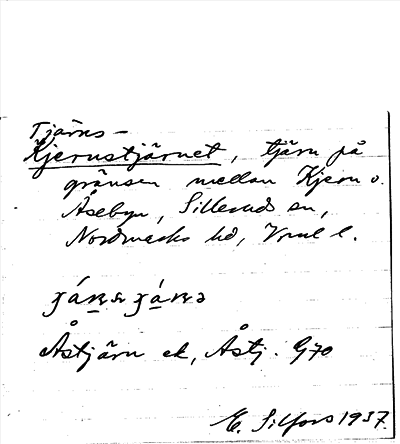 Tjärns-
Kjernstjärnet, tjärn på
gränsen mellan Kjern o.
Åsebyn, Sillerud sn,
Nordmarks hd, Vrml l.
Åstjärn ek, Åstj. G70
E. Silfors 1937.